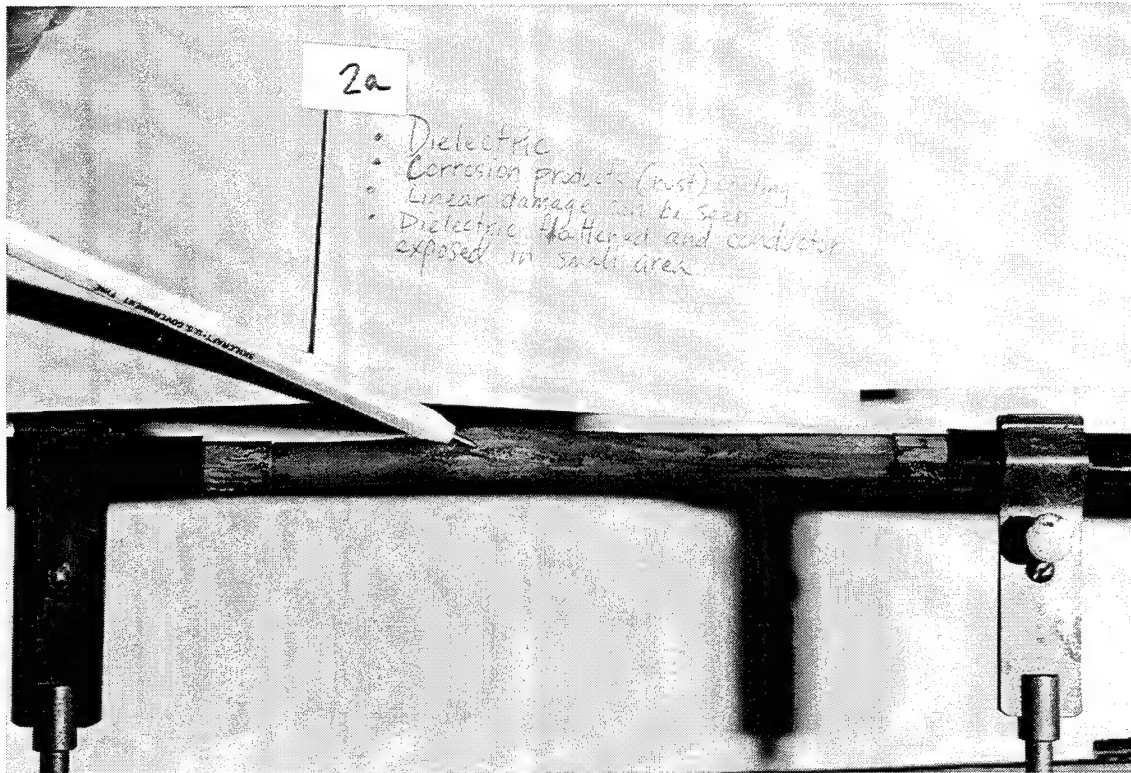 2a
• Dielectric
• Corrosion products (rust)
• Linear damage can be seen
• Dielectric flattened and conductor
exposed in small area
SKILCRAFT-U.S. GOVERNMENT